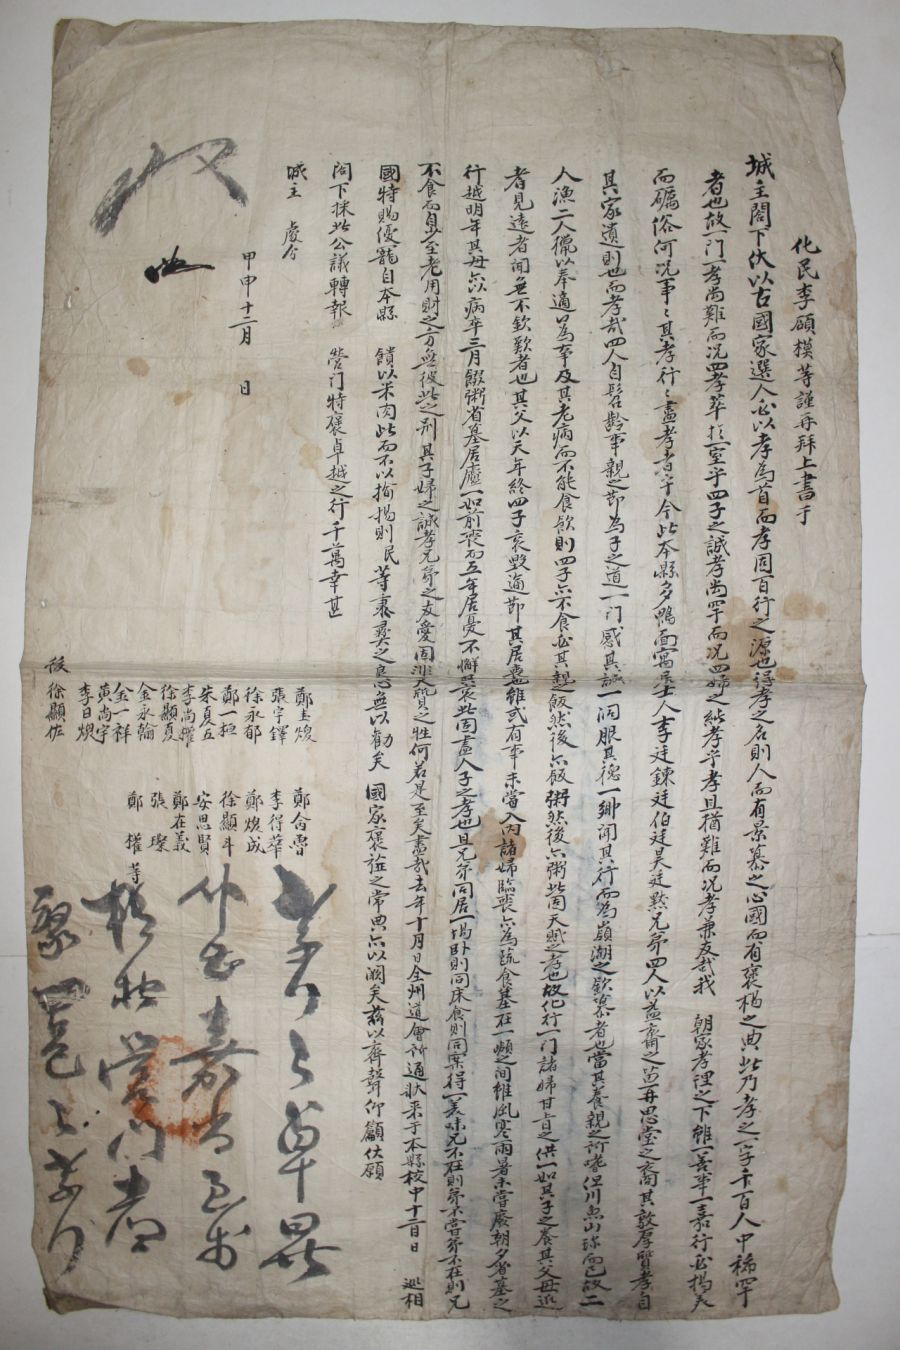 化民李頤模等謹再拜上書于
城主閤下伏以古國家選人必以孝為首而孝固百行之源也得孝之名則人而有景慕之心國而有褒楊之典此乃孝之一字千百人中稀罕
者也故一門一孝尚難而况四孝萃於一室乎四子之誠孝尚罕而况四婦之純孝乎孝且猶難而况孝兼友哉我 朝家孝理之下雖一善事一嘉行必揚美
而礪俗何况事〻其孝行〻盡孝者乎今此本縣多鴨面寓居士人李廷鍊廷伯廷昊廷默兄弟四人以益齋之苗再思堂之裔其敦厚賢孝自
其家遺則也而孝哉四人自髫齡事親之節為子之道一門感其誠一洞服其德一鄉聞其行而為嶺湖之歎慕者也當其養親之所嗜但川魚山珍而已故二
人漁二人獵以奉適口為事及其老病而不能食飲則四子亦不食必其親之飯然後亦飯粥然後亦粥此固天賦之孝也故化行一門諸婦甘旨之供一如其子之養其父母近
者見遠者聞無不欽歎者也其父以天年終四子哀毀過節其居喪也雖或有事未嘗入內諸婦臨喪亦為蔬食墓在一頻之間雖風寒雨暑未嘗廢朝夕省墓之
行越明年其母亦以病卒三月餟粥省墓居廬一如前喪而五年居憂不懈其哀此固盡人子之孝也且兄弟同居一塲臥則同床食則同案得一美味兄不在則弟不嘗弟不在則兄
不食而自少至老用財之方無彼此之別其子婦之誠孝兄弟之友愛固非天質之性何若是至矣盡哉去年十月日全州道會所通狀來于本縣校中十二月日 巡相
國特賜優寵自本縣 饋以米肉此而不以揄揚則民等秉彝之良心無以勸矣 國家褒旌之常典亦以闕矣茲以齊聲仰籲伏願
閤下採此公議轉報 營門特褒卓越之行千萬幸甚
城主 處分
甲申十二月 日
張宇鐸
徐永郁
鄭一桓
朱夏五
李尚權
徐顯夏
金永翰
金一祥
黃尚宇
李日煥
徐顯佐
鄭合魯
李得華
鄭煥成
徐顯斗
安思賢
鄭在義
張 璨
鄭 權 等